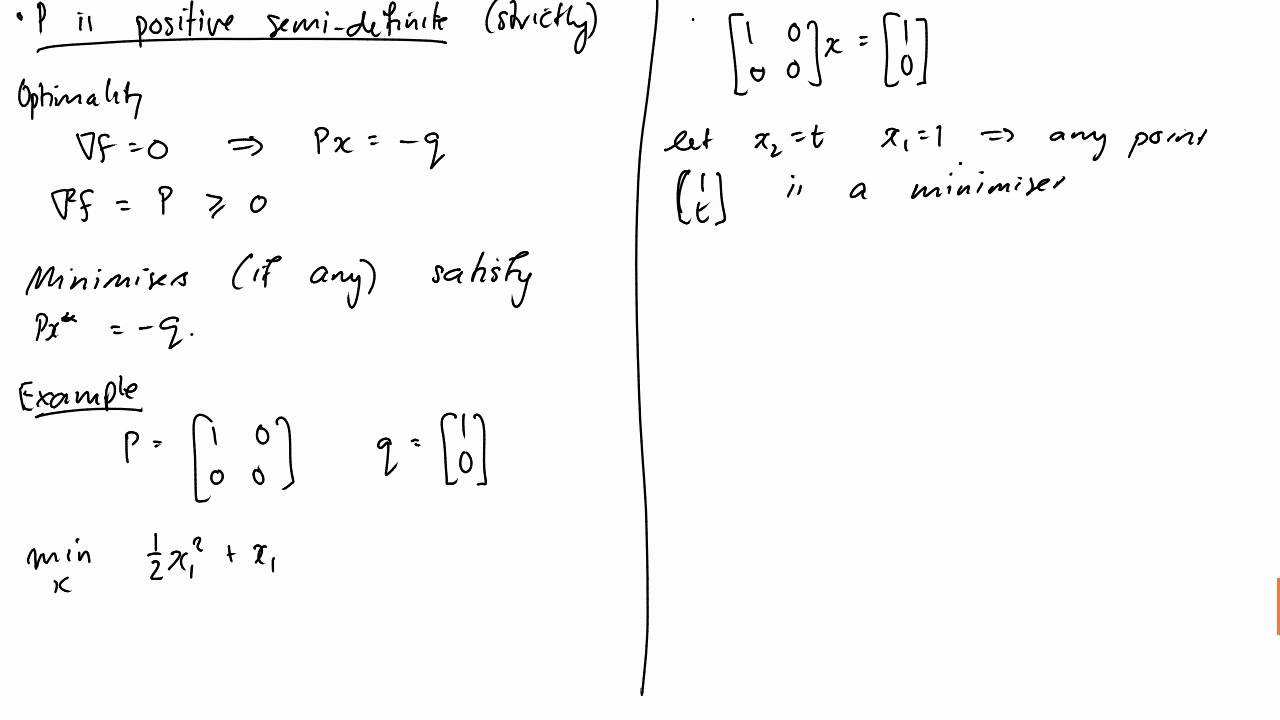 • P is positive semi-definite (strictly)
Optimality
∇f = 0 ⇒ Px = -q
∇²f = P ≥ 0
Minimisers (if any) satisfy
Px* = -q.
Example
P = [1 0; 0 0] q = [1; 0]
min ½x₁² + x₁
x
[1 0; 0 0] x = [1; 0]
let x₂ = t x₁ = 1 ⇒ any point
[1; t] is a minimiser